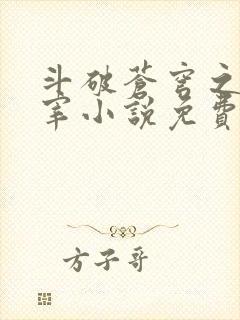 斗破蒼穹之
宰小說免費
方子哥